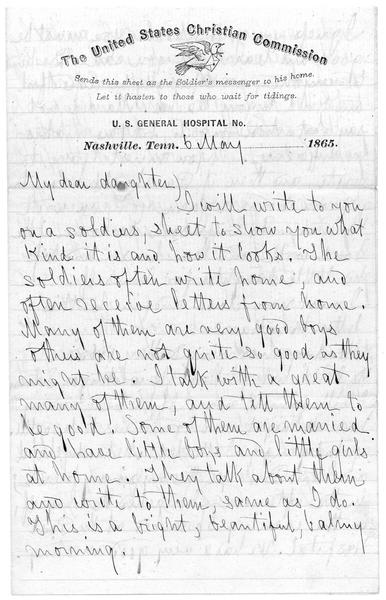 The United States Christian Commission
Sends this sheet as the Soldier's messenger to his home.
Let it hasten to those who wait for tidings.
U. S. GENERAL HOSPITAL No.
Nashville, Tenn. 6 May 1865.
My dear daughter,
I will write to you
on a soldiers, sheet to show you what
kind it is and how it looks. The
soldiers often write home, and
often receive letters from home.
Many of them are very good boys
others are not quite so good as they
might be. I talk with a great
many of them, and tell them to
be good. Some of them are married
and have little boys and little girls
at home. They talk about them
and write to them, same as I do.
This is a bright, beautiful, balmy
morning.